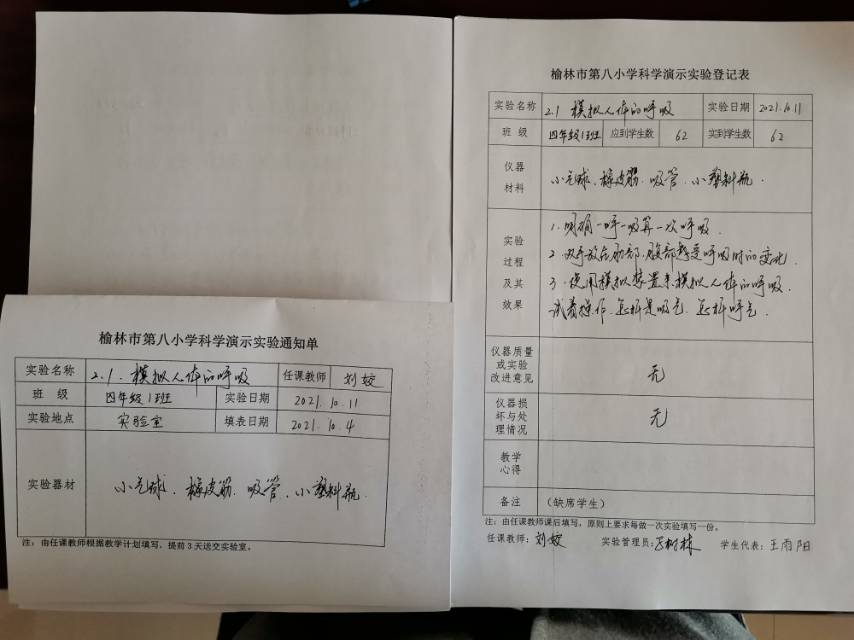 榆林市第八小学科学演示实验通知单
实验名称 2.1.模拟人体的呼吸 任课教师 刘姣
班 级 四年级1班 实验日期 2021.10.11
实验地点 实验室 填表日期 2021.10.4
实验器材 小气球、橡皮筋、吸管、小塑料瓶
注：由任课教师根据教学计划填写，提前3天送交实验室。
榆林市第八小学科学演示实验登记表
实验名称 2.1 模拟人体的呼吸 实验日期 2021.10.11
班 级 四年级1班 应到学生数 62 实到学生数 62
仪器
材料
小气球、橡皮筋、吸管、小塑料瓶.
实验
过程
及其
效果
1.明确一呼一吸算一次呼吸.
2.双手放在肋部、腹部感受呼吸时的变化.
3.使用模拟装置来模拟人体的呼吸.
试着操作.怎样是吸气.怎样呼气.
仪器质量
或实验
改进意见
无
仪器损
坏与处
理情况
无
教学
心得
备注 （缺席学生）
注：由任课教师课后填写，原则上要求每做一次实验填写一份。
任课教师：刘姣 实验管理员： 学生代表：王雨阳